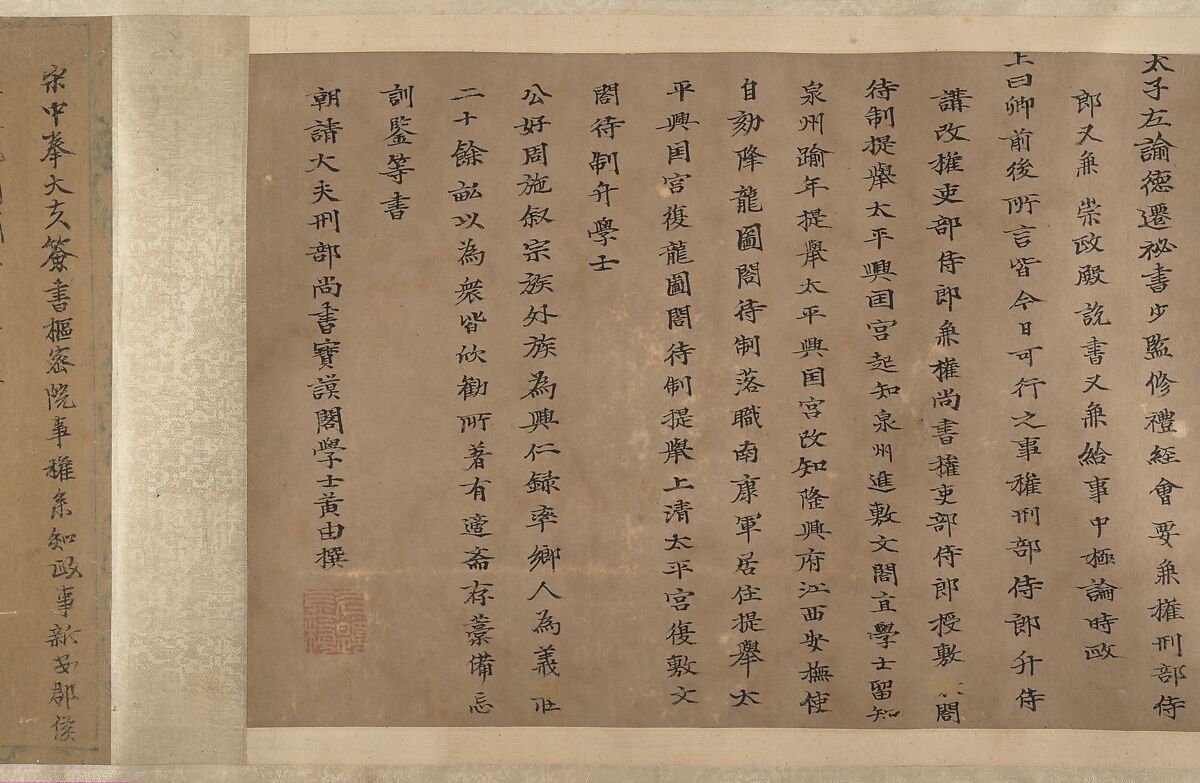 太子左諭德遷祕書少監修禮經會要兼權刑部侍
郎又兼崇政殿說書又兼給事中極論時政
上曰卿前後所言皆今日可行之事權刑部侍郎升侍
講改權吏部侍郎兼權尚書權吏部侍郎授敷文閣
待制提舉太平興国宮起知泉州進敷文閣直學士留知
泉州踰年提舉太平興国宮改知隆興府江西安撫使
自劾降龍圖閣待制落職南康軍居住提舉太
平興国宮復龍圖閣待制提舉上清太平宮復敷文
閣待制升學士
公好周施叙宗族外族為興仁録率鄉人為義莊
二十餘畝以為衆皆欣勸所著有適斋存藁備忘
訓鑒等書
朝請大夫刑部尚書寶謨閣學士黃由撰
宋中奉大夫簽書樞密院事權叅知政事新安郡侯